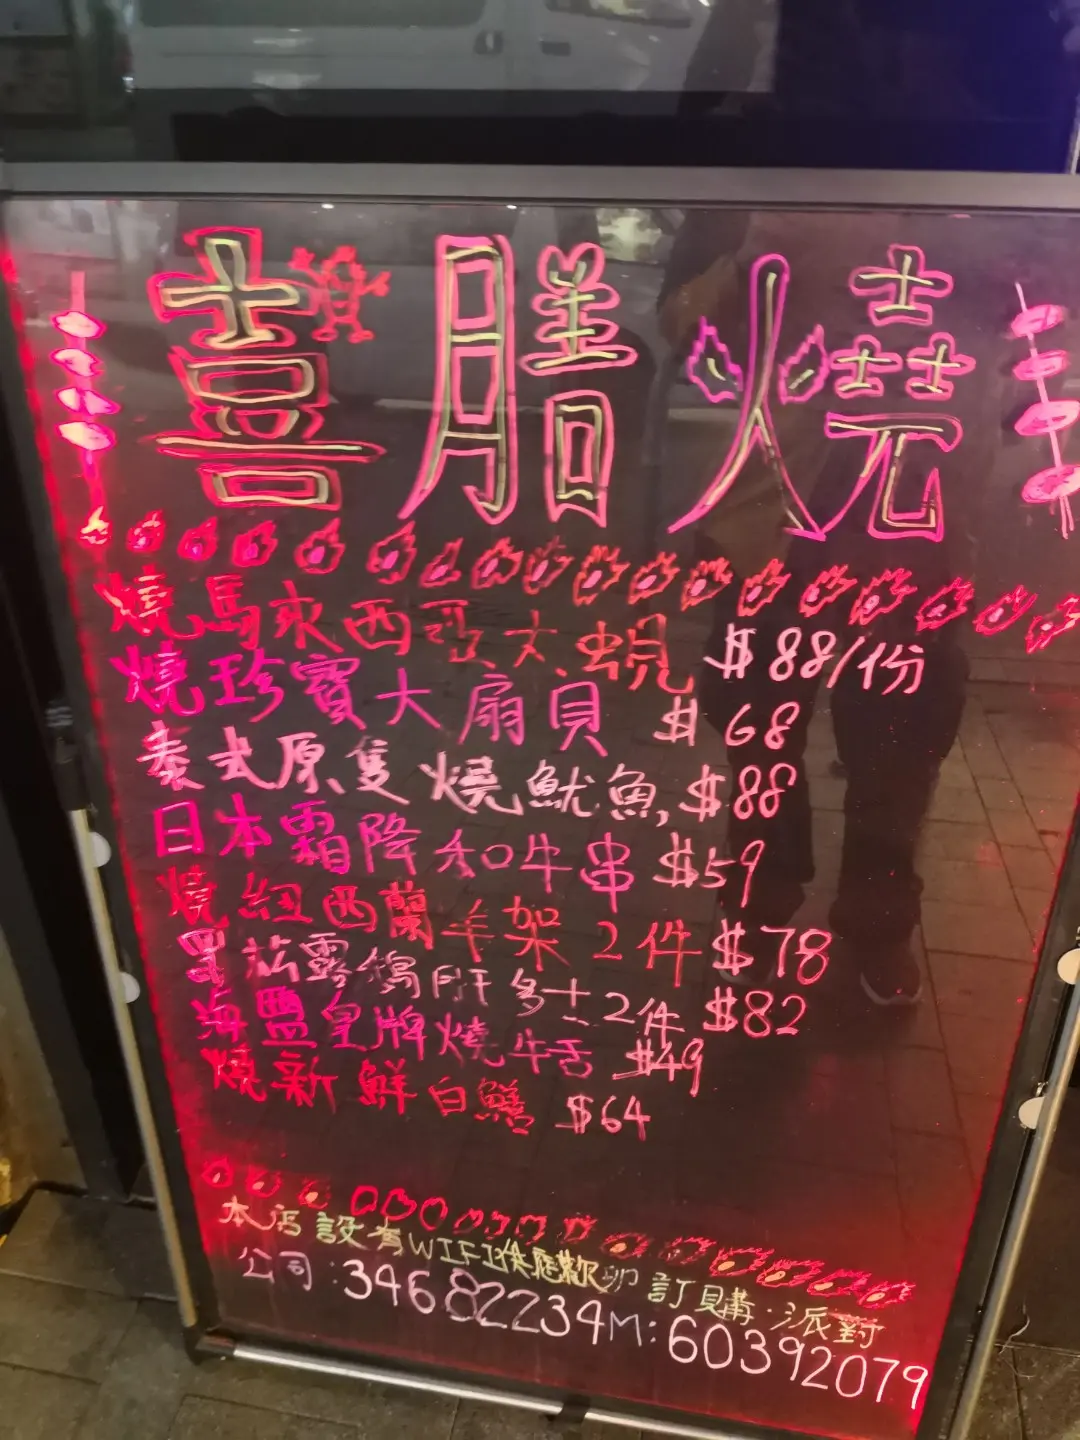 喜膳燒
燒馬來西亞大蜆 $88/份
燒珍寶大扇貝 $68
泰式原隻燒魷魚, $88
日本霜降和牛串 $59
燒紐西蘭羊架2件 $78
黑菘露鵝肝多士2件 $82
海鹽皇牌燒牛舌 $49
燒新鮮白鱔 $64
本店設有WIFI供應歡迎訂購.派對
公司:34682234 M:60392079